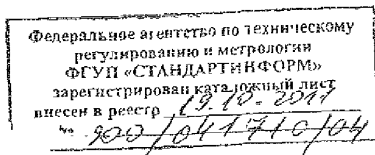 Федеральное агентство по техническому
регулированию и метрологии
ФГУП «СТАНДАРТИНФОРМ»
зарегистрирован каталожный лист
внесен в реестр 19.10.2011
№ 200/041710/04